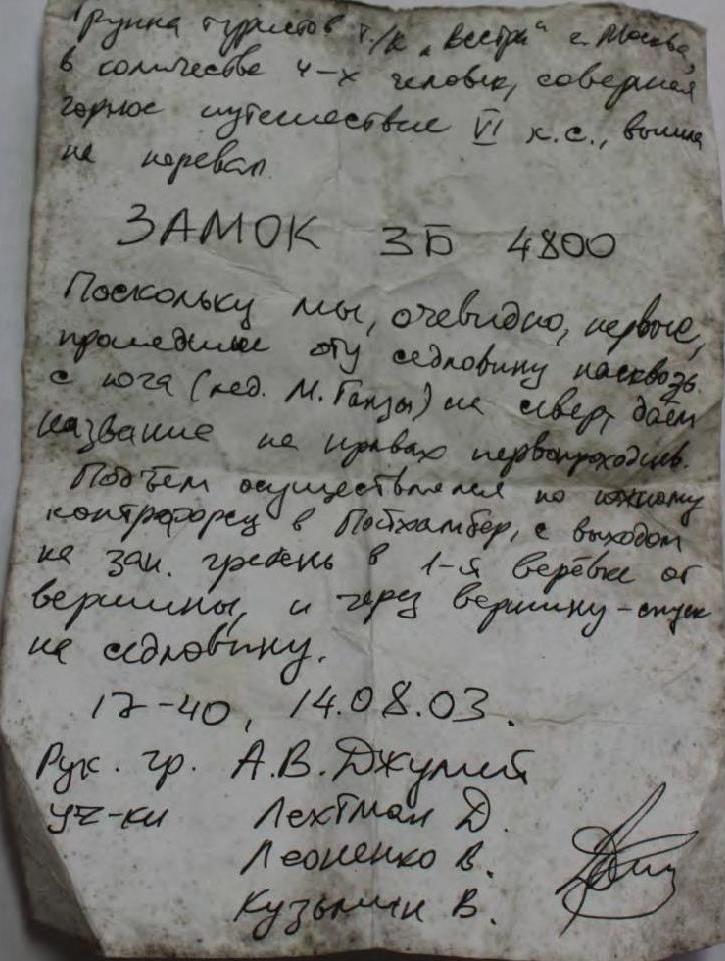 Группа туристов т/к „Вестра“ г. Москва,
в количестве 4-х человек, совершая
горное путешествие VI к.с., вышла
на перевал
ЗАМОК 3Б 4800
Поскольку мы, очевидно, первые,
прошедшие эту седловину насквозь
с юга (лед. М. Танзы) на север, даём
название на правах первопроходцев.
Подъём осуществлялся по южному
контрфорсу в Постхамбер, с выходом
на зап. гребень в 1-й верёвке от
вершины, и через вершину - спуск
на седловину.
17-40, 14.08.03.
Рук. гр. А.В. Джулий
уч-ки Лехтман Д.
Леоненко В.
Кузьмин В.